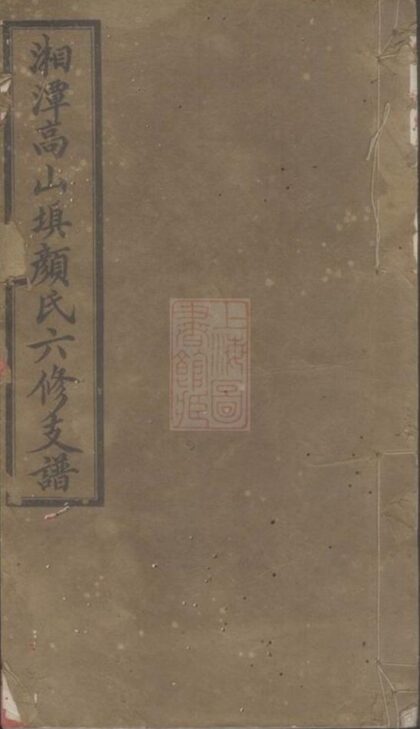 湘潭高山塡顏氏六修支譜
上海圖
書館藏